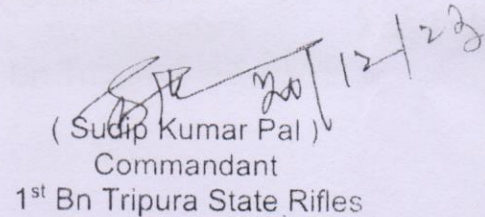 20/12/23
( Sudip Kumar Pal )
Commandant
1st Bn Tripura State Rifles